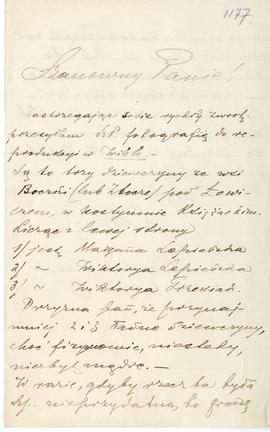 1177.
Szanowny Panie!
zastrzegając sobie rychły zwrot,
przesyłam Sz. P. fotografię do re-
produkcyi w Wiśle.
Są to trzy dziewczyny ze wsi
Boczki (lub Złocze) pod Łowi-
czem, w kostyumie Księżackim.
Licząc z lewej strony
1/ jest Maryanna
2/ ~ Wiktorya
3/ ~ Wiktorya
Przyzna pan, że przynaj-
mniej 2 i 3 ładne dziewczyny,
choć fizyonomie, niestety,
niezbyt mądre. —
W razie, gdyby rzecz ta była
nieprzydatna, to proszę